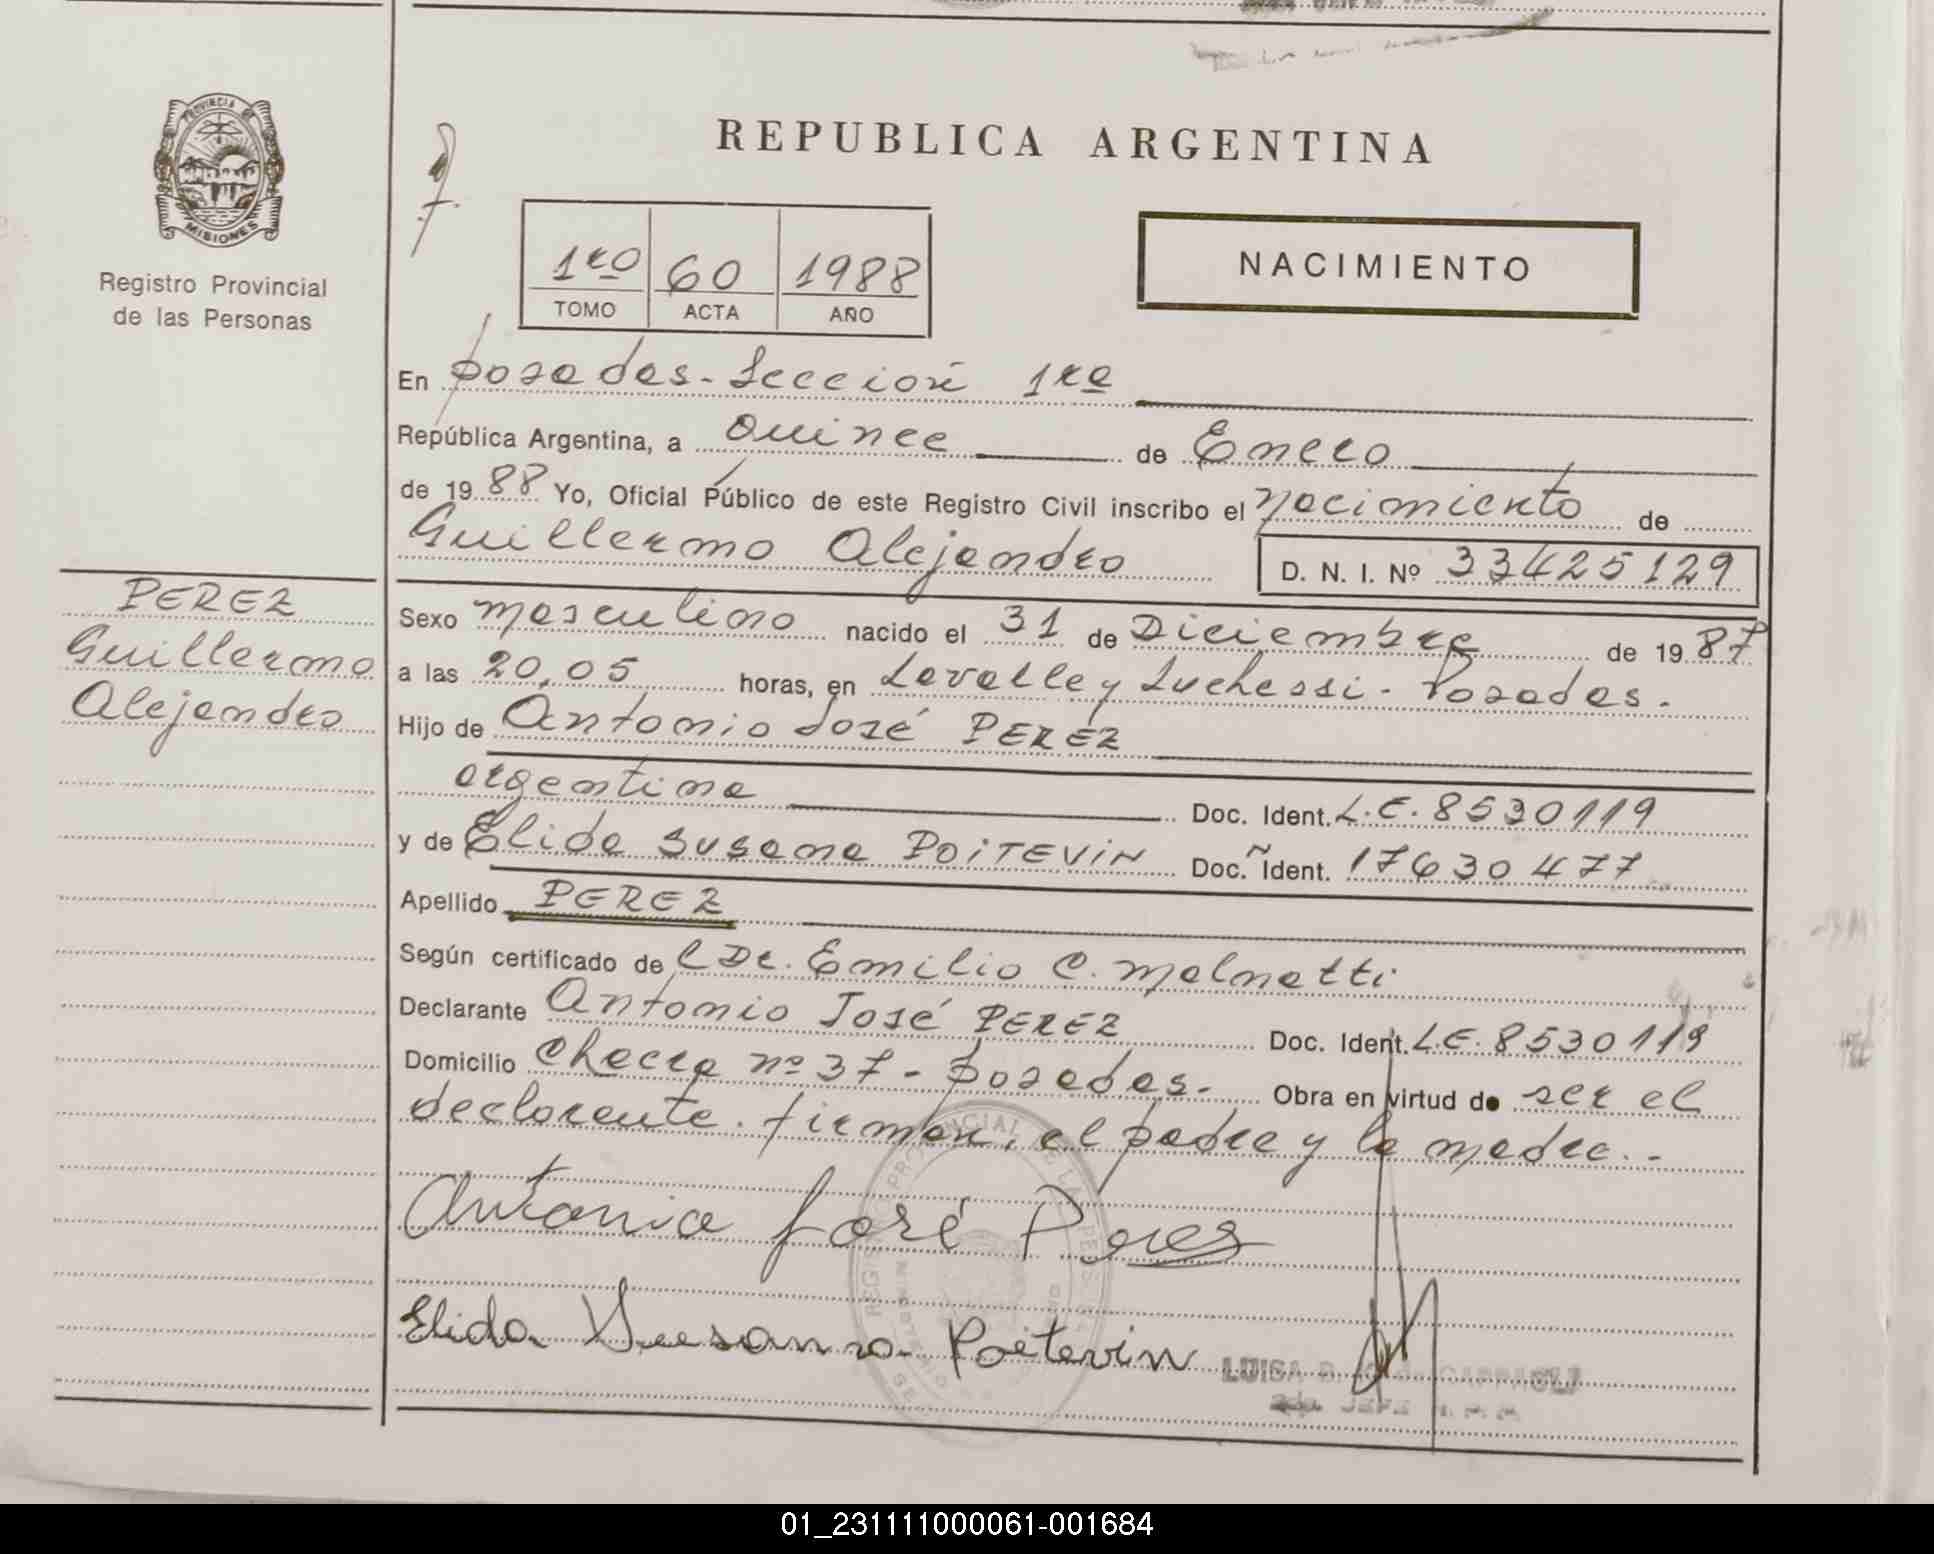 REPUBLICA ARGENTINA
PROVINCIA DE
MISIONES
Registro Provincial
de las Personas
1ro 60 1988
TOMO ACTA AÑO
NACIMIENTO
En Posadas - Sección 1ra
República Argentina, a Quince de Enero
de 1988 Yo, Oficial Público de este Registro Civil inscribo el Nacimiento de
Guillermo Alejandro D. N. I. Nº 33425129
PEREZ
Guillermo
Alejandro
Sexo masculino nacido el 31 de Diciembre de 1987
a las 20,05 horas, en Lavalle y Luchessi - Posadas.
Hijo de Antonio José PEREZ
argentina Doc. Ident. L.E. 8530119
y de Elida Susana POITEVIN Doc. Ident. 17630477
Apellido PEREZ
Según certificado de l Dr. Emilio C. Malnatti
Declarante Antonio José PEREZ Doc. Ident. L.E. 8530119
Domicilio Chacra nº 37 - Posadas. Obra en virtud de ser el
declarante. firman, el padre y la madre.-
Antonio José Perez
Elida Susana Poitevin
LUISA
01_231111000061-001684